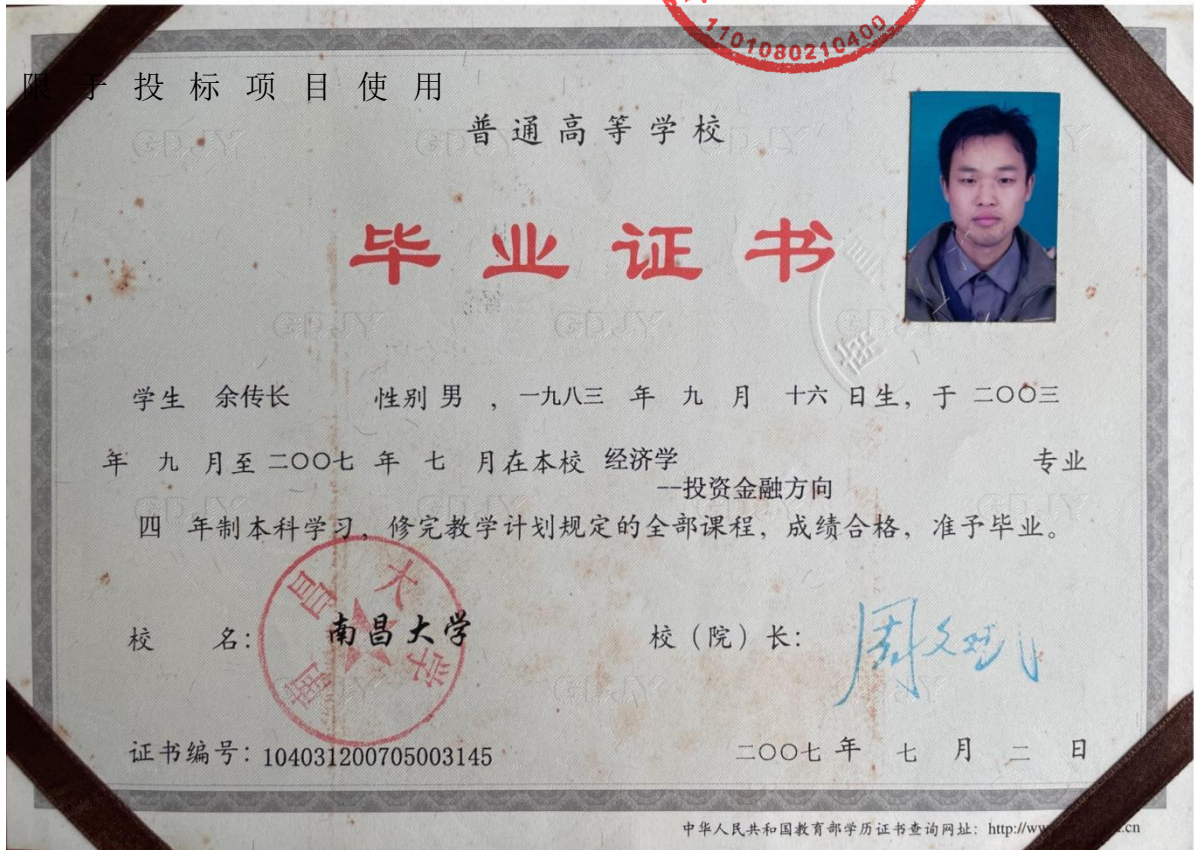 1101080210400
限于投标项目使用
普通高等学校
毕业证书
学生 余传长 性别 男 ，一九八三 年 九 月 十六 日生，于 二〇〇三
年 九 月至 二〇〇七 年 七 月在本校 经济学 专业
--投资金融方向
四 年制本科学习，修完教学计划规定的全部课程，成绩合格，准予毕业。
校 名： 南昌大学 校（院）长：
南昌大学
证书编号：104031200705003145 二〇〇七 年 七 月 二 日
中华人民共和国教育部学历证书查询网址：http://ww .cn
GDJY